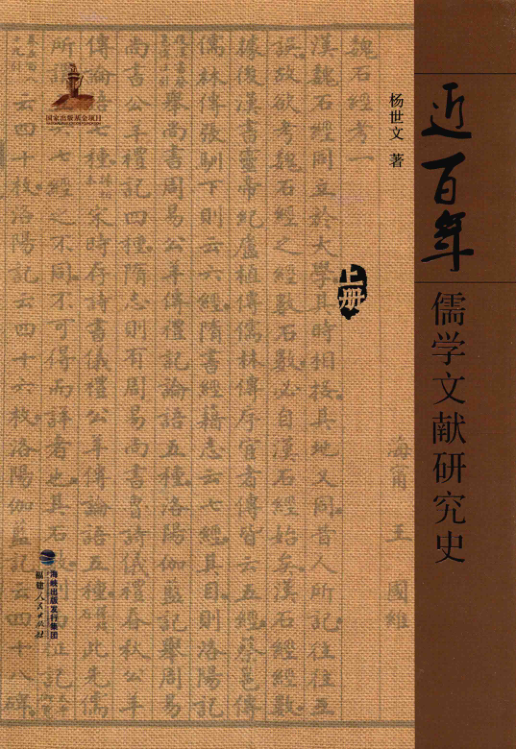 近百年
儒学文献研究史
杨世文 著
上册
国家出版基金项目
海峡出版发行集团
福建人民出版社
魏石經考一
海甯 王 國維
漢魏石經同立於大學其時相接其地又同昔人所記往往互
誤故欲考魏石經之經數石數必自漢石經始矣漢石經經數
據後漢書靈帝紀盧植傳儒林傳序宦者傳皆云五經蔡邕傳
儒林傳張馴下則云六經隋書經籍志云七經其目則洛陽記
舉尚書周易公羊傳禮記論語五種洛陽伽藍記舉周易
尚書公羊禮記四種隋志則有周易尚書魯詩儀禮春秋公羊
傳論語七種 宋時存詩書儀禮公羊傳論語五種 此先儒
所 六七經之不同不可得而詳者也其石 征記
云四十枚洛陽記云四十六枚洛陽伽藍記云四十八碑